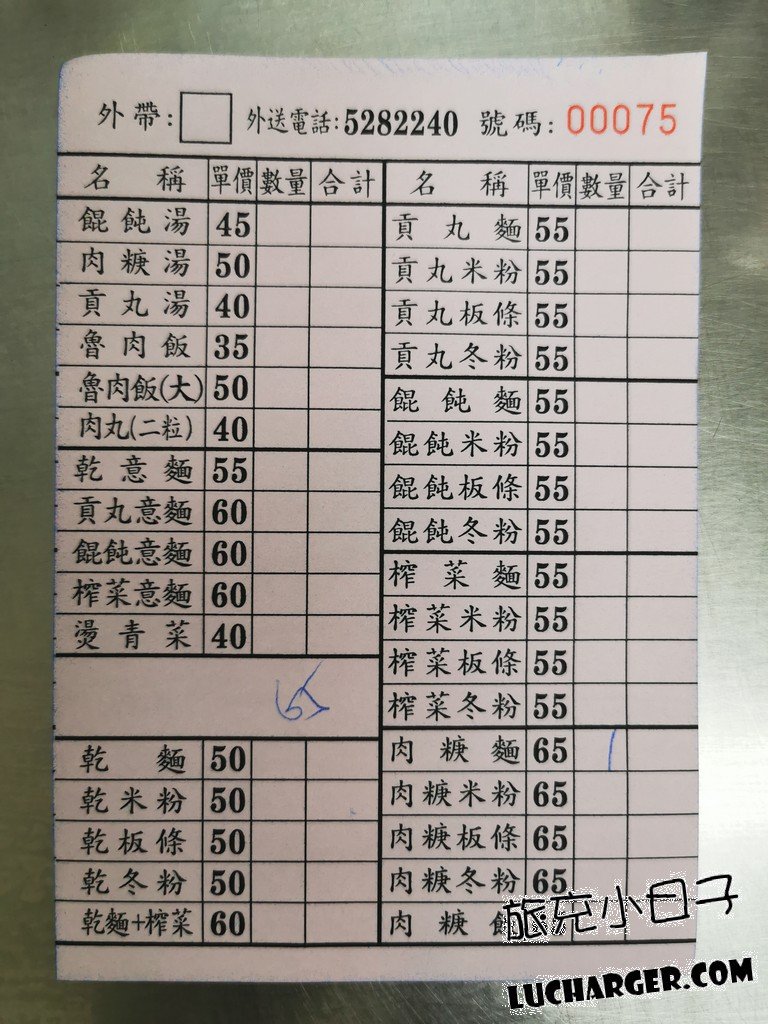 外帶: 外送電話:5282240 號碼: 00075
名稱 單價 數量 合計
餛飩湯 45
肉糖湯 50
貢丸湯 40
魯肉飯 35
魯肉飯(大) 50
肉丸(二粒) 40
乾意麵 55
貢丸意麵 60
餛飩意麵 60
榨菜意麵 60
燙青菜 40
65
乾麵 50
乾米粉 50
乾板條 50
乾冬粉 50
乾麵+榨菜 60
名稱 單價 數量 合計
貢丸麵 55
貢丸米粉 55
貢丸板條 55
貢丸冬粉 55
餛飩麵 55
餛飩米粉 55
餛飩板條 55
餛飩冬粉 55
榨菜麵 55
榨菜米粉 55
榨菜板條 55
榨菜冬粉 55
肉糖麵 65 1
肉糖米粉 65
肉糖板條 65
肉糖冬粉 65
肉糖
旅充小日子
LUCHARGER.COM